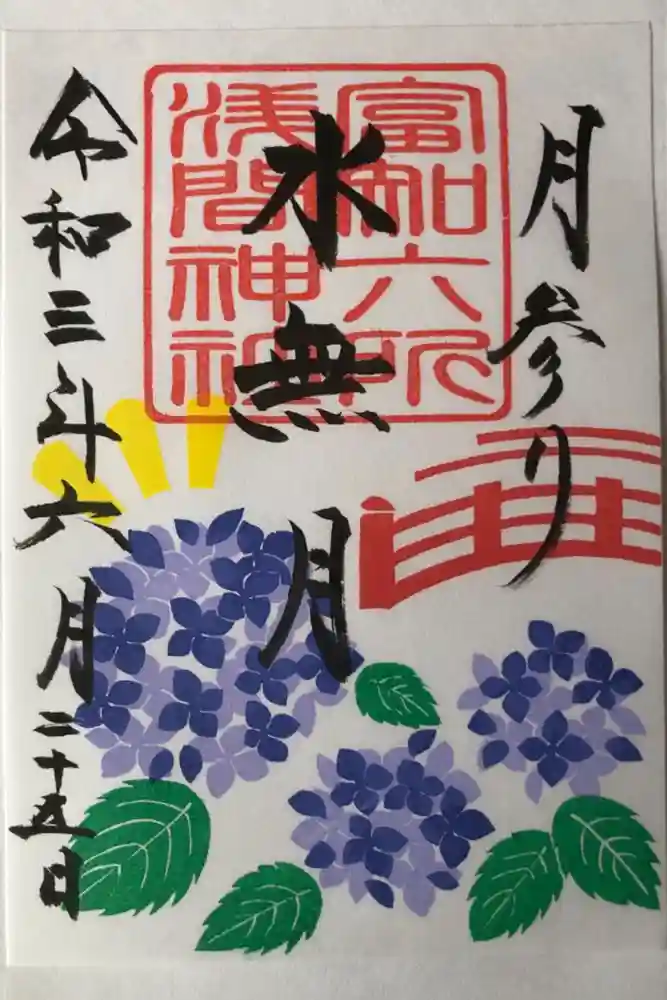 月参り
水無月
富知六所
浅間神社
令和三年六月二十五日